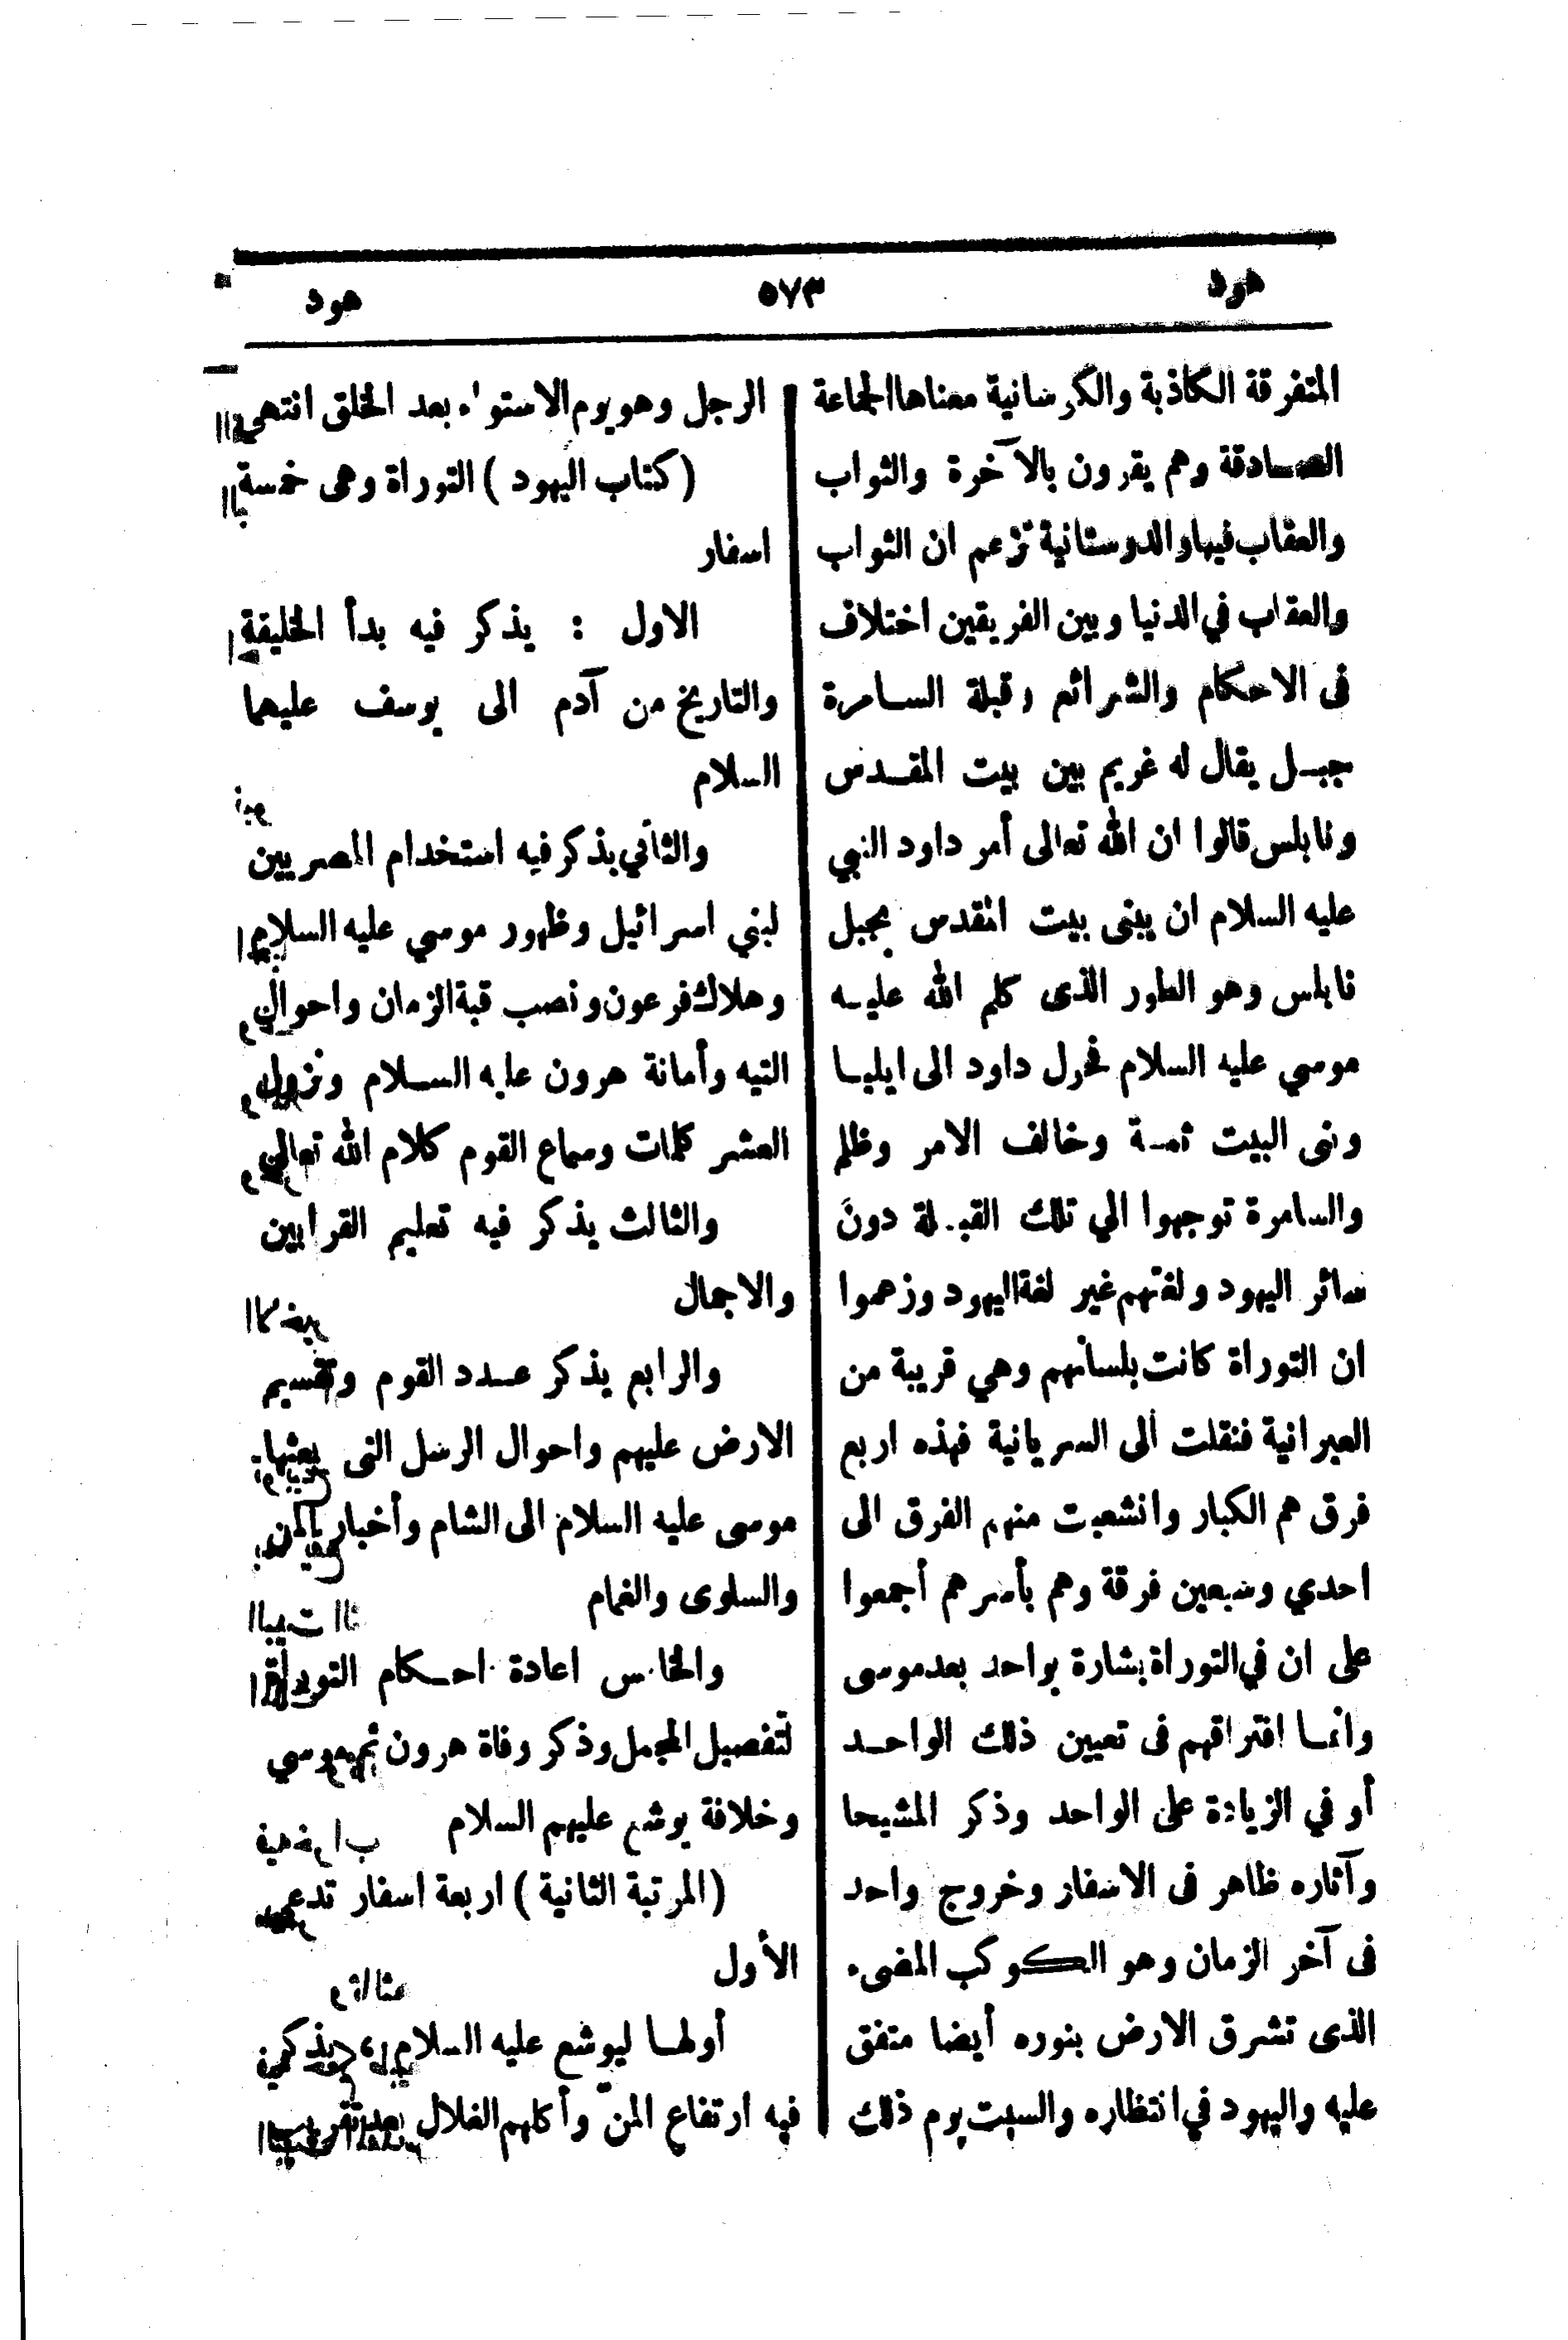 هود
٥٧٣
هود
المتفرقة الكاذبة والكرسانية معناها الجماعة
الصادقة وهم يقرون بالآخرة والثواب
والعقاب فيها والدوستانية تزعم ان الثواب
والعقاب في الدنيا وبين الفريقين اختلاف
فى الاحكام والشرائع وقبلة السامرة
جبل يقال له غريم بين بيت المقدس
ونابلس قالوا ان الله تعالى أمر داود النبي
عليه السلام ان يبنى بيت المقدس بجبل
نابلس وهو الطور الذى كلم الله عليه
موسي عليه السلام فحول داود الى ايليا
وبنى البيت ثمة وخالف الامر وظلم
والسامرة توجهوا الي تلك القبلة دون
سائر اليهود ولغتهم غير لغة اليهود وزعموا
ان التوراة كانت بلسانهم وهي قريبة من
العبرانية فنقلت الى السريانية فهذه اربع
فرق هم الكبار وانشعبت منهم الفرق الى
احدي وسبعين فرقة وهم بأسرهم أجمعوا
على ان في التوراة بشارة بواحد بعد موسى
وانما افتراقهم فى تعيين ذلك الواحد
أو في الزيادة على الواحد وذكر المشيحا
وآثاره ظاهر فى الاسفار وخروج واحد
فى آخر الزمان وهو الكوكب المضىء
الذى تشرق الارض بنوره أيضا متفق
عليه واليهود في انتظاره والسبت يوم ذلك
الرجل وهو يوم الاستواء بعد الخلق انتهي
(كتاب اليهود) التوراة وهى خمسة
اسفار
الاول : يذكر فيه بدأ الخليقة
والتاريخ من آدم الى يوسف عليهما
السلام
والثاني يذكر فيه استخدام المصريين
لبني اسرائيل وظهور موسي عليه السلام
وهلاك فرعون ونصب قبة الزمان واحوال
التيه وأمانة هرون عليه السلام ونزول
العشر كلمات وسماع القوم كلام الله تعالى
والثالث يذكر فيه تعليم القرابين
والاجمال
والرابع يذكر عدد القوم وتقسيم
الارض عليهم واحوال الرسل التى بعثها
موسى عليه السلام الى الشام وأخبار المن
والسلوى والغمام
والخامس اعادة احكام التوراة
لتفصيل المجمل وذكر وفاة هرون ثم موسي
وخلافة يوشع عليهم السلام
(المرتبة الثانية) اربعة اسفار تدعى
الأول
أولها ليوشع عليه السلام يذكر
فيه ارتفاع المن وأكلهم الغلال بعد تقريب